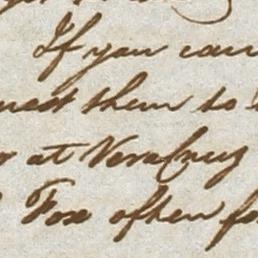 If you can
them to
at VeraCruz
Fox often